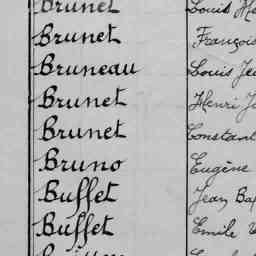 Brunet Louis
Brunet François
Bruneau Louis
Brunet Henri
Brunet Constant
Bruno Eugène
Buffet Jean
Buffet Emile